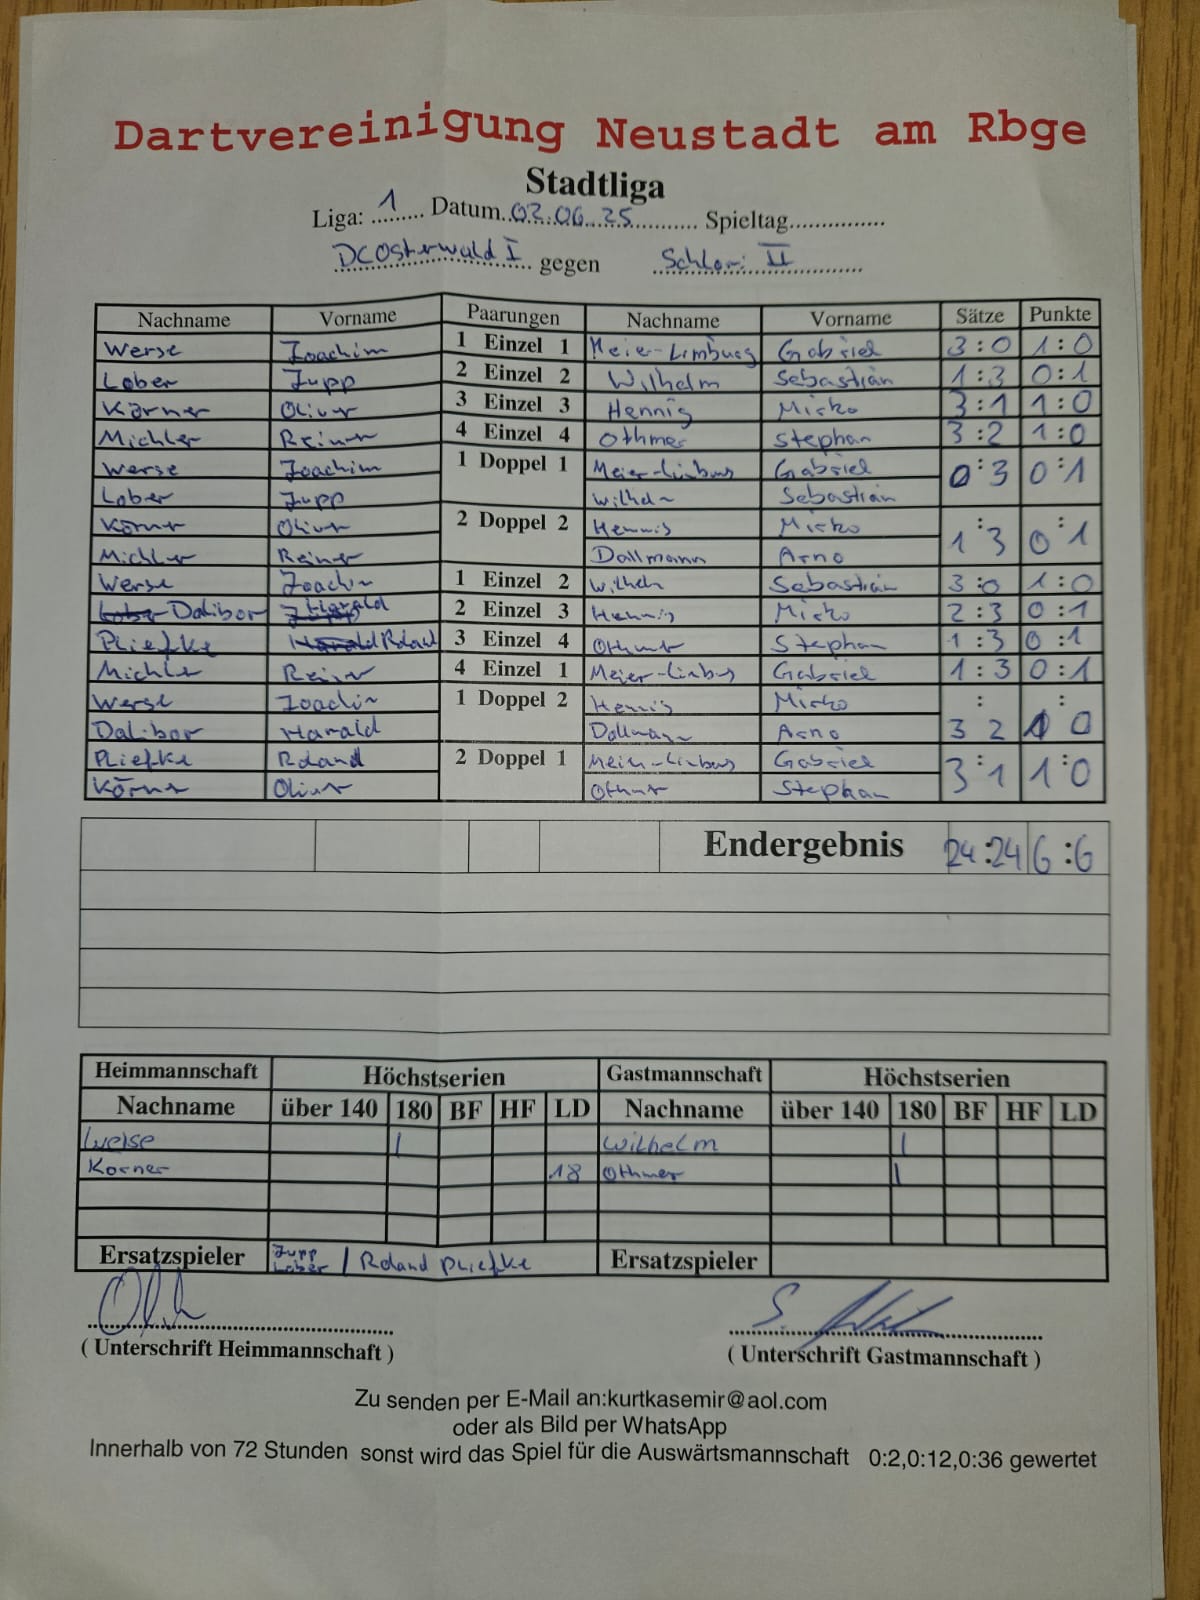 Dartvereinigung Neustadt am Rbge
Stadtliga
Liga: 1 Datum 02.06.25 Spieltag
DC Osterwald I gegen Schlori II
Nachname Vorname Paarungen Nachname Vorname Sätze Punkte
Werse Joachim 1 Einzel 1 Meier-Limburg Gabriel 3:0 1:0
Lober Jupp 2 Einzel 2 Wilhelm Sebastian 1:3 0:1
Körner Oliver 3 Einzel 3 Hennig Mirko 3:1 1:0
Michler Reiner 4 Einzel 4 Othmer Stephan 3:2 1:0
Werse Joachim 1 Doppel 1 Meier-Limburg Gabriel 0:3 0:1
Lober Jupp Wilhelm Sebastian
Körner Oliver 2 Doppel 2 Hennig Mirko 1:3 0:1
Michler Reiner Dallmann Arno
Werse Joachim 1 Einzel 2 Wilhelm Sebastian 3:0 1:0
Dalibor Harald 2 Einzel 3 Hennig Mirko 2:3 0:1
Pliefke Roland 3 Einzel 4 Othmer Stephan 1:3 0:1
Michler Reiner 4 Einzel 1 Meier-Limburg Gabriel 1:3 0:1
Werse Joachim 1 Doppel 2 Hennig Mirko 3:2 1:0
Dalibor Harald Dallmann Arno
Pliefke Roland 2 Doppel 1 Meier-Limburg Gabriel 3:1 1:0
Körner Oliver Othmer Stephan
Endergebnis 24:24 6:6
Heimmannschaft Höchstserien Gastmannschaft Höchstserien
Nachname über 140 180 BF HF LD Nachname über 140 180 BF HF LD
Werse | Wilhelm |
Körner 18 Othmer |
Ersatzspieler Jupp Lober / Roland Pliefke Ersatzspieler
( Unterschrift Heimmannschaft ) ( Unterschrift Gastmannschaft )
Zu senden per E-Mail an:kurtkasemir@aol.com
oder als Bild per WhatsApp
Innerhalb von 72 Stunden sonst wird das Spiel für die Auswärtsmannschaft 0:2,0:12,0:36 gewertet